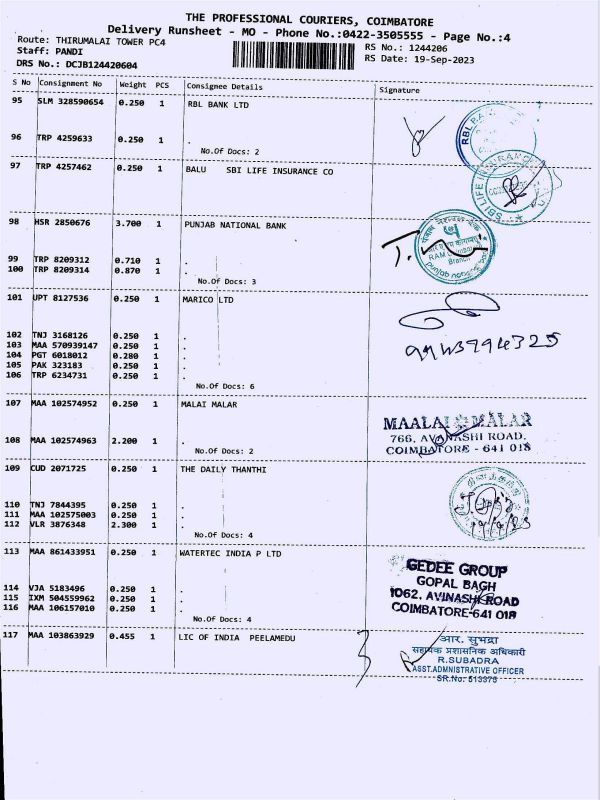 THE PROFESSIONAL COURIERS, COIMBATORE
Delivery Runsheet - MO - Phone No.:0422-3505555 - Page No.:4
Route: THIRUMALAI TOWER PC4
RS No.: 1244206
Staff: PANDI
RS Date: 19-Sep-2023
DRS No.: DCJB124420604
S No Consignment No Weight PCS Consignee Details Signature
95 SLM 328590654 0.250 1 RBL BANK LTD
96 TRP 4259633 0.250 1 .
No.Of Docs: 2
97 TRP 4257462 0.250 1 BALU SBI LIFE INSURANCE CO
98 HSR 2850676 3.700 1 PUNJAB NATIONAL BANK
99 TRP 8209312 0.710 1 .
100 TRP 8209314 0.870 1 .
No.Of Docs: 3
101 UPT 8127536 0.250 1 MARICO LTD
102 TNJ 3168126 0.250 1 .
103 MAA 570939147 0.250 1 .
104 PGT 6018012 0.280 1 .
105 PAK 323183 0.250 1 .
106 TRP 6234731 0.250 1 .
No.Of Docs: 6
107 MAA 102574952 0.250 1 MALAI MALAR
MAALAI MALAR
766, AVANASHI ROAD.
COIMBATORE - 641 018
108 MAA 102574963 2.200 1 .
No.Of Docs: 2
109 CUD 2071725 0.250 1 THE DAILY THANTHI
110 TNJ 7844395 0.250 1 .
111 MAA 102575003 0.250 1 .
112 VLR 3876348 2.300 1 .
No.Of Docs: 4
113 MAA 861433951 0.250 1 WATERTEC INDIA P LTD
GEDEE GROUP
GOPAL BAGH
1062, AVINASHI ROAD
COIMBATORE-641 018
114 VJA 5183496 0.250 1 .
115 IXM 504559962 0.250 1 .
116 MAA 106157010 0.250 1 .
No.Of Docs: 4
117 MAA 103863929 0.455 1 LIC OF INDIA PEELAMEDU
आर. सुभद्रा
सहायक प्रशासनिक अधिकारी
R.SUBADRA
ASST.ADMNISTRATIVE OFFICER
SR.No: 513375